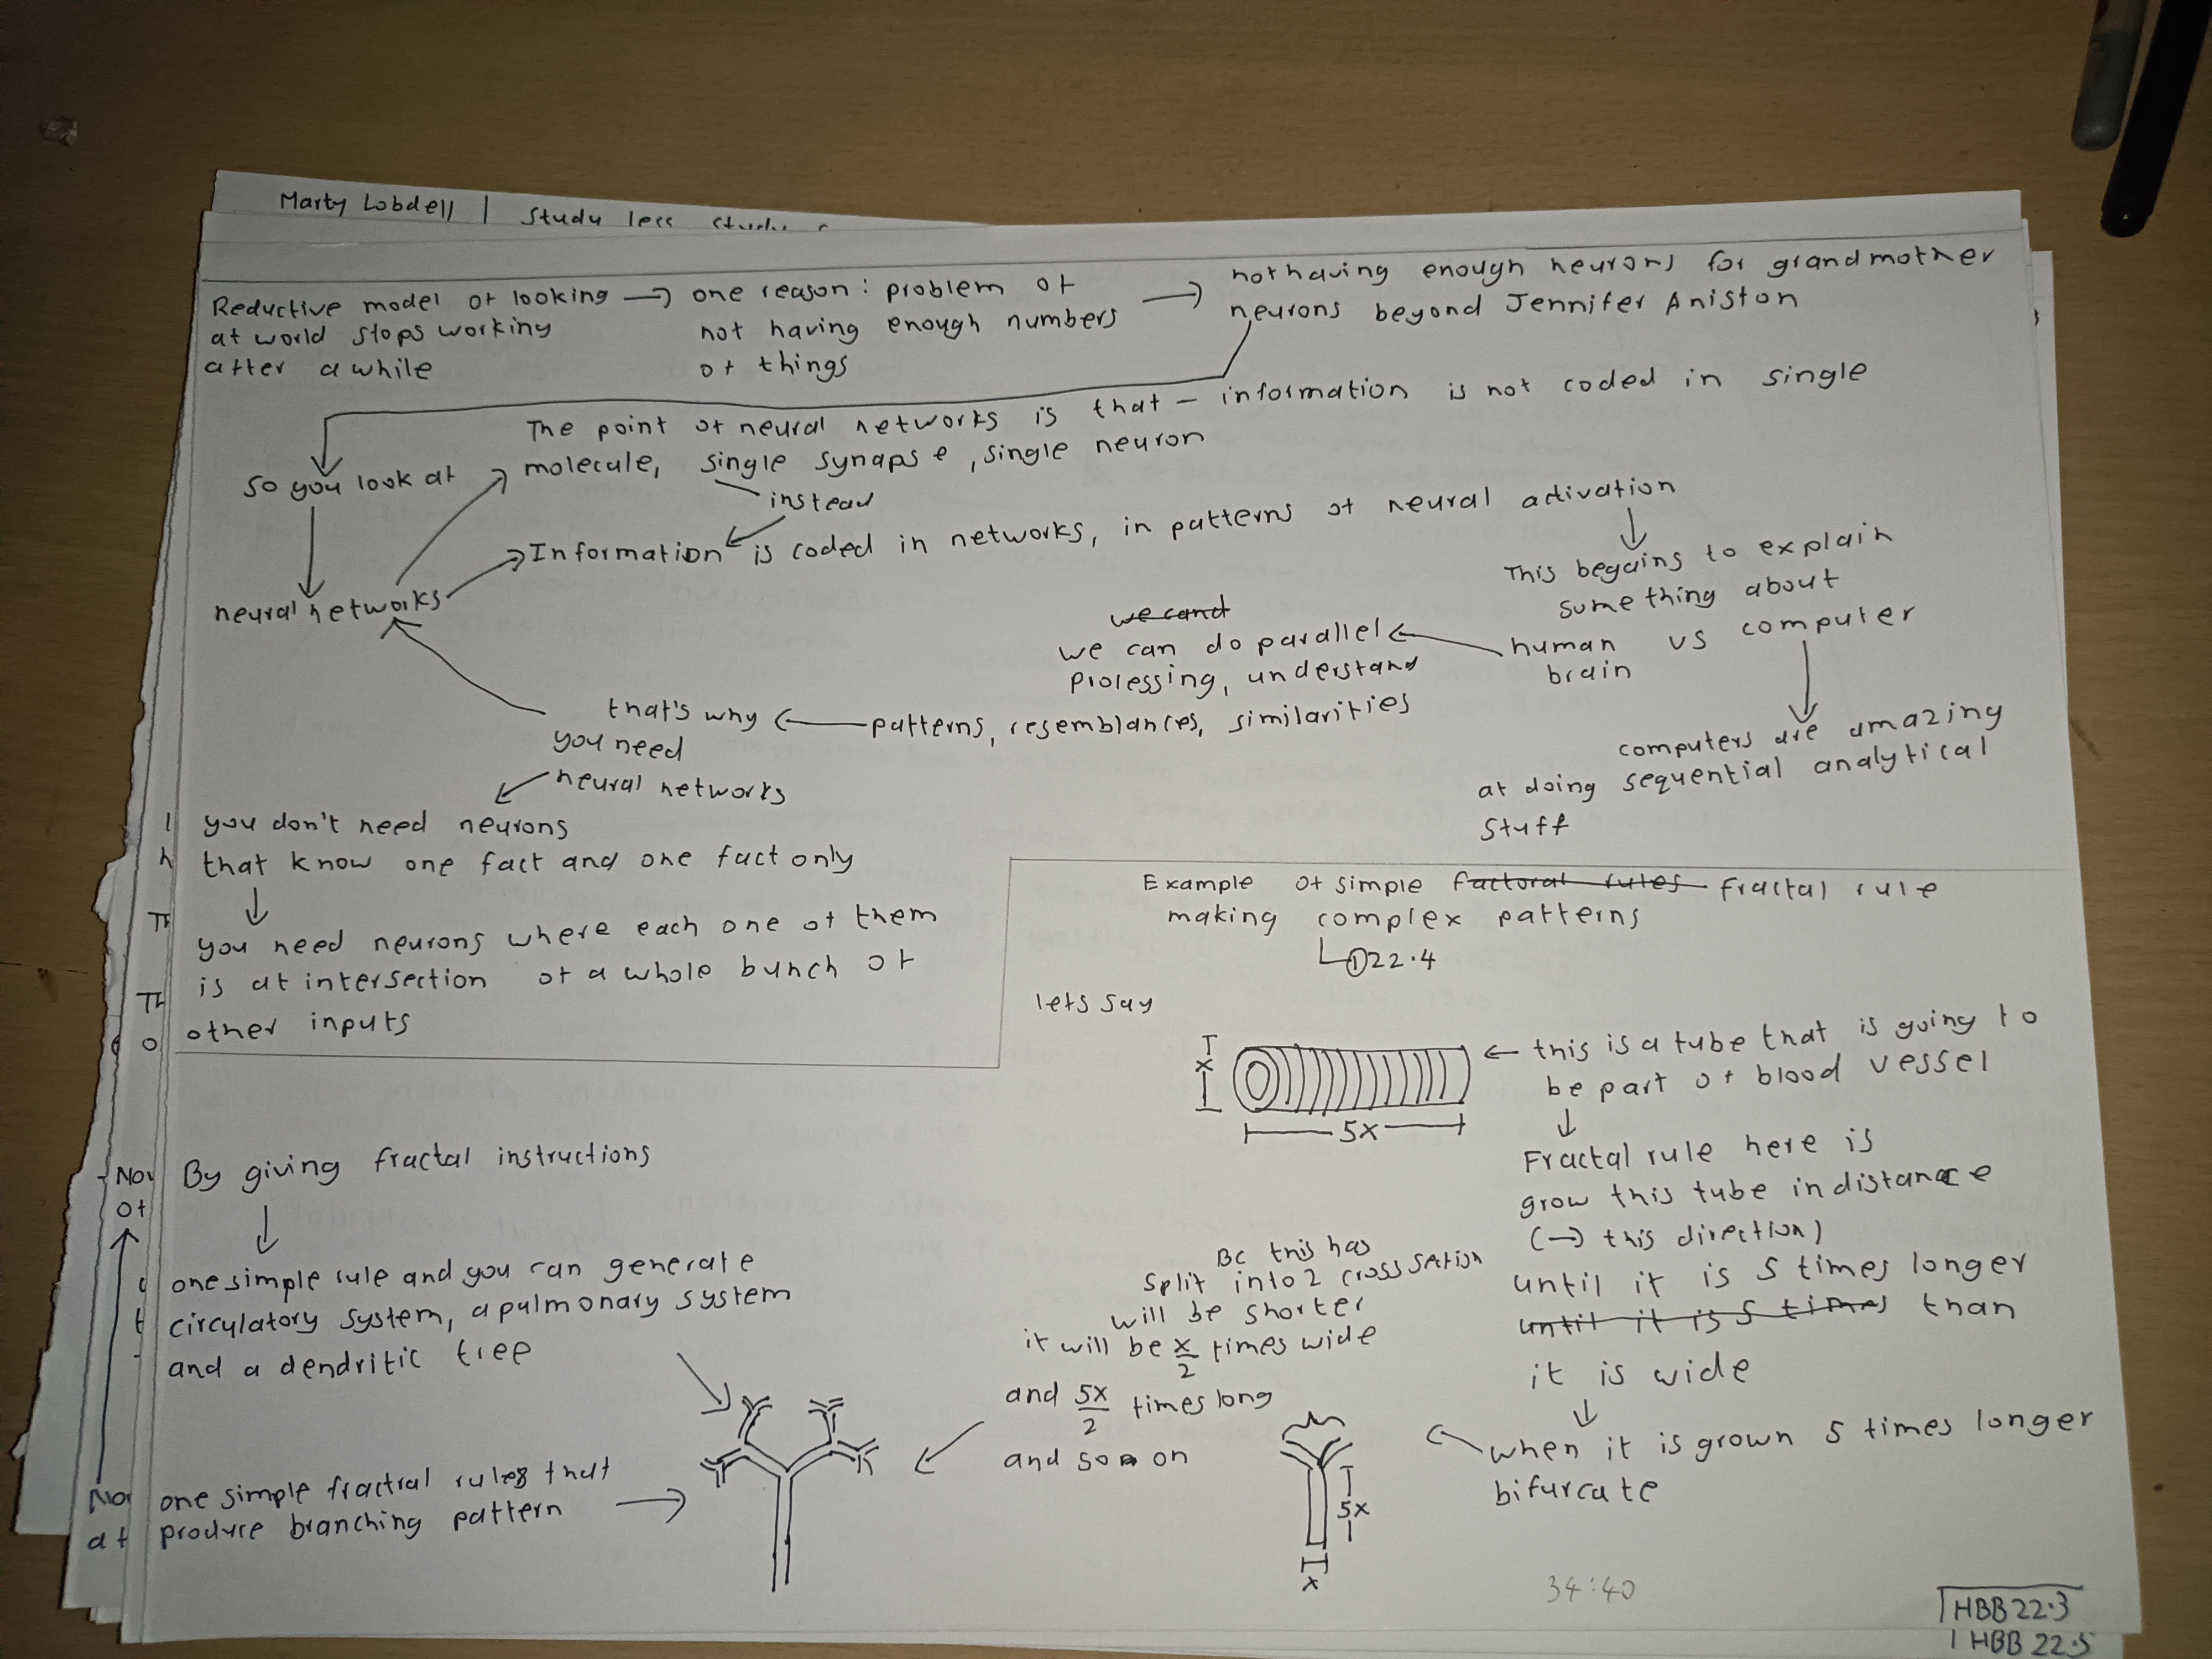 Marty Lobdell | Study less
Reductive model of looking → one reason: problem of → not having enough neurons for grandmother
at world stops working not having enough numbers neurons beyond Jennifer Aniston
after a while of things
The point of neural networks is that - information is not coded in single
molecule, single synapse, single neuron
so you look at
instead
Information is coded in networks, in patterns of neural activation
neural networks
This begains to explain
something about
human vs computer
brain
we cand
we can do parallel
processing, understand
patterns, resemblances, similarities
that's why
you need
neural networks
computers are amazing
at doing sequential analytical
stuff
you don't need neurons
that know one fact and one fact only
you need neurons where each one of them
is at intersection of a whole bunch of
other inputs
Example of simple factoral rules fractal rule
making complex patterns
①22.4
lets say
x
5x
this is a tube that is going to
be part of blood vessel
Fractal rule here is
grow this tube in distance
(→ this direction)
until it is 5 times longer
until it is 5 times than
it is wide
when it is grown 5 times longer
bifurcate
5x
x
Bc this has
split into 2 cross section
will be shorter
it will be x/2 times wide
and 5x/2 times long
and so on
By giving fractal instructions
one simple rule and you can generate
circulatory system, a pulmonary system
and a dendritic tree
one simple fractral rules that
produce branching pattern
34:40
HBB 22.3
HBB 22.5